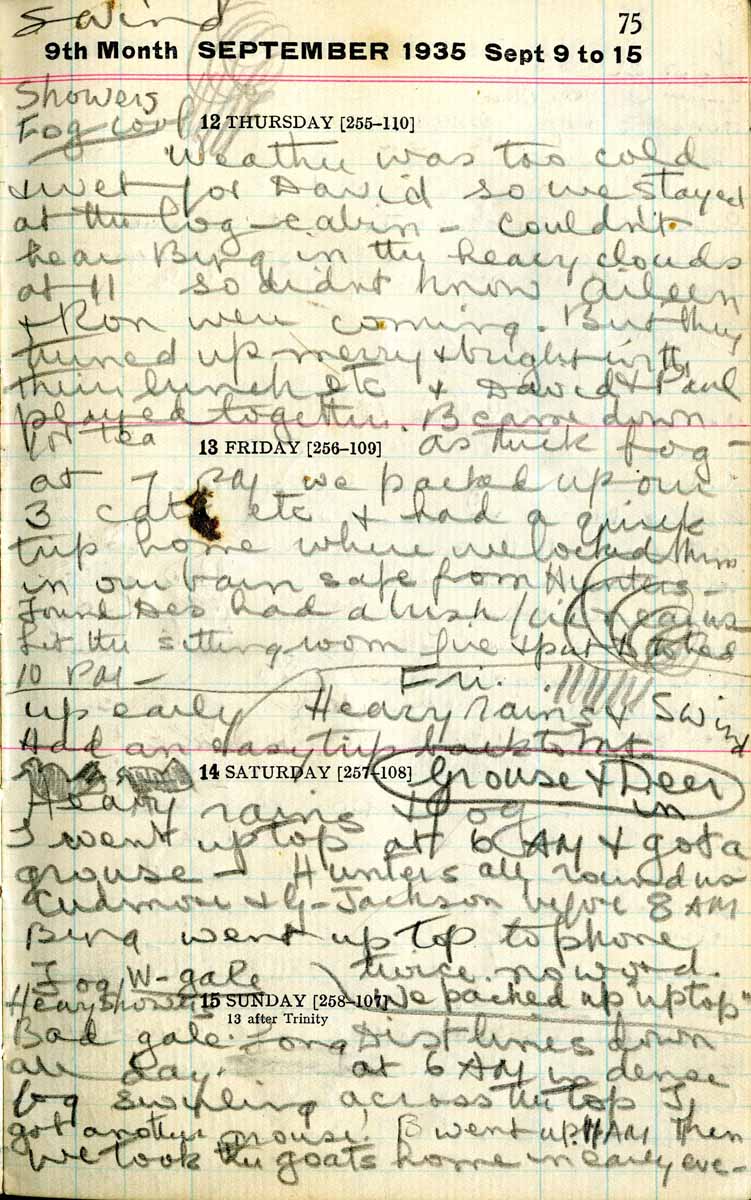 S Wind
75
9th Month SEPTEMBER 1935 Sept 9 to 15
Showers
Fog cool
12 THURSDAY [255-110]
Weather was too cold
& wet for David so we stayed
at the log-cabin - couldn't
hear Bing in the heavy clouds
at 11 so didnt know Aileen
& Ron were coming. But they
turned up merry & bright with
their lunch etc & David & Paul
played together. B came down
for tea
13 FRIDAY [256-109]
as thick fog -
at 7 PM we packed up our
3 cats etc & had a quick
trip home where we locked them
in our barn safe from Hunters -
Found Des had a lush near us
Lit the sitting room fire & put to bed
10 PM -
Fri.
up early Heavy rains & S Wind
Had an easy trip back to Mt.
14 SATURDAY [257-108]
Grouse & Deer
Heavy rains & fog in
I went up top at 6 AM & got a
grouse - Hunters all round us
Cudmore & G-Jackson before 8 AM
Bing went up top to phone
Fog W-gale twice. no word.
Heavy showers
15 SUNDAY [258-107]
We packed up "up top"
13 after Trinity
Bad gale. Long Dist lines down
all day. at 6 AM in dense
fog swirling across the top I
got another grouse. B went up 11 AM Then
we took the goats home in early eve-